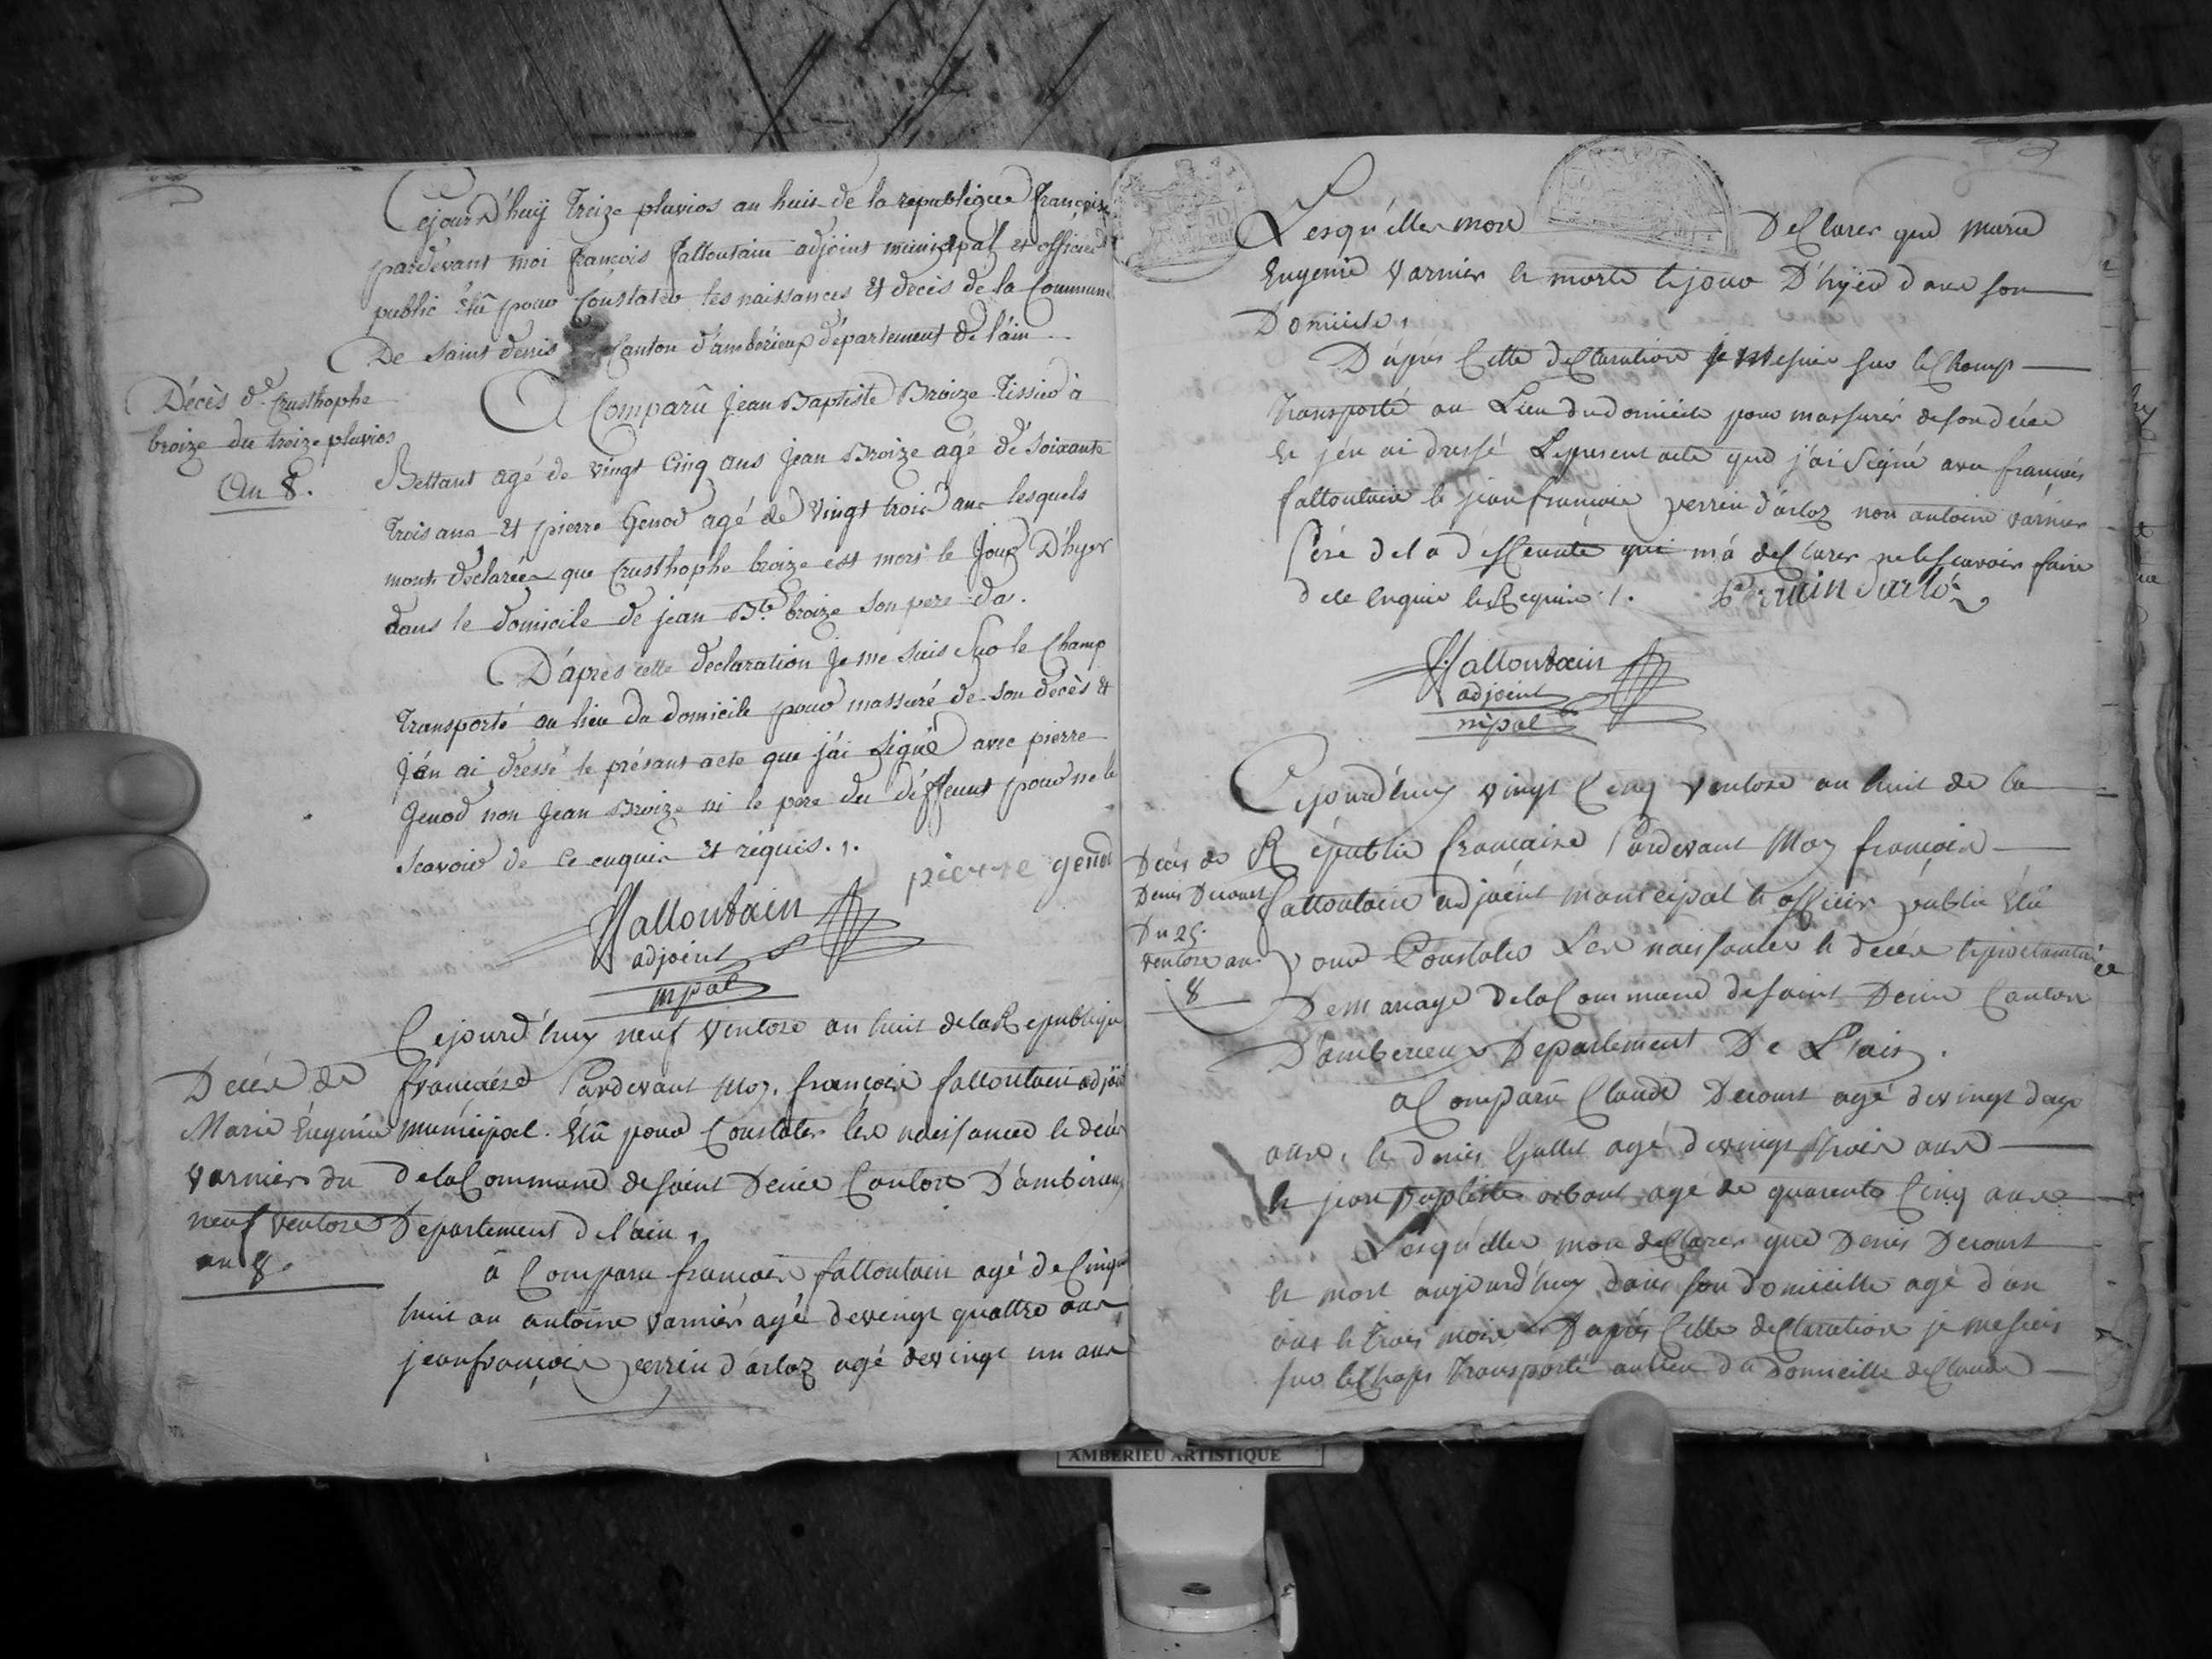 Cejourd'huy Treize pluvios an huit de la republique françoise
pardevant moi françois falloutain adjoint municipal et officier
public élû pour Constater les naissances et décès de la Commune
De saint denis Canton d'amberieux département de l'ain
Décès de Crusthophe
broize du treize pluvios
An 8.
A Comparû Jean Baptiste Broize Tissier à
Bettant agé de vingt Cinq ans Jean Broize agé de soixante
trois ans et pierre Genod agé de vingt trois ans lesquels
mont declarées que Crusthophe broize est mort le Jour D'hyer
dans le domicile de jean Bte broize son pere
D'après cette declaration Je me suis Sur le Champ
Transporté au lieu du domicile pour massuré de son décès et
J'én ai dressé le présant acte que j'ai signé avec pierre
Genod non Jean Broize ni le pere du déffeunt pour ne le
scavoir de ce enquis et réquis.
pierre genod
falloutain
adjoint
mpal
Decès de
Marie Eugenie
varnier du
neuf ventose
an 8.
Cejourd'huy neuf Ventose an huit de la Republique
françaisse Pardevant Moy françois fallontain adjoint
municipal Elû pour Constater les naissances et décès
de la Commune de saint Denis Canton D'amberieux
Departement de l'ain,
à Comparu françois fallontain agé de Cinquante
huit an antoine varnier agé de vingt quattre ans
jean françois perrin d'arloz agé de vingt un ans
Lesqu'elles mon Déclarer que marie
Eugenie varnier et morte le jour D'hyier dans son
Domicile,
D'aprés Cette declaration je me suis sur le Champ
transporté au Lieu du domicile pour massurér de son décès
et j'én ai dressé Le present acte que j'ai signé avec françois
fallontain et jean françois perrin d'arloz non antoine varnier
Péré de la déffeunte qui m'a declarer ne le scavoir faire
de ce enquis et Requis ./.
Perrin Darlo
fallontain
adjoint
mpal
Decés de
Denis Decourt
Du 25.
ventose an
8
Cejourd'huy vingt Cinq ventose an huit de la
République française Pardevant Moy françois
fallontain adjoint municipal et officier public Elû
pour Constater Les naissances et décès et proclamation
De mariage de la Commune de saint Denis Canton
D'amberieux Departement De L'ain.
a Comparû Claude Decourt agé de vingt deux
ans, et denis Gullet agé de vingt trois ans
et jean Baptiste orbant agé de quarente Cinq ans
Lesqu'elles mon declarer que Denis Decourt
et mort aujourd'huy dans son domicille agé d'un
ans et trois mois D'aprés Cette declaration je me suis
sur le Champ transporté au lieu du Domicille de Claude
AMBERIEU ARTISTIQUE